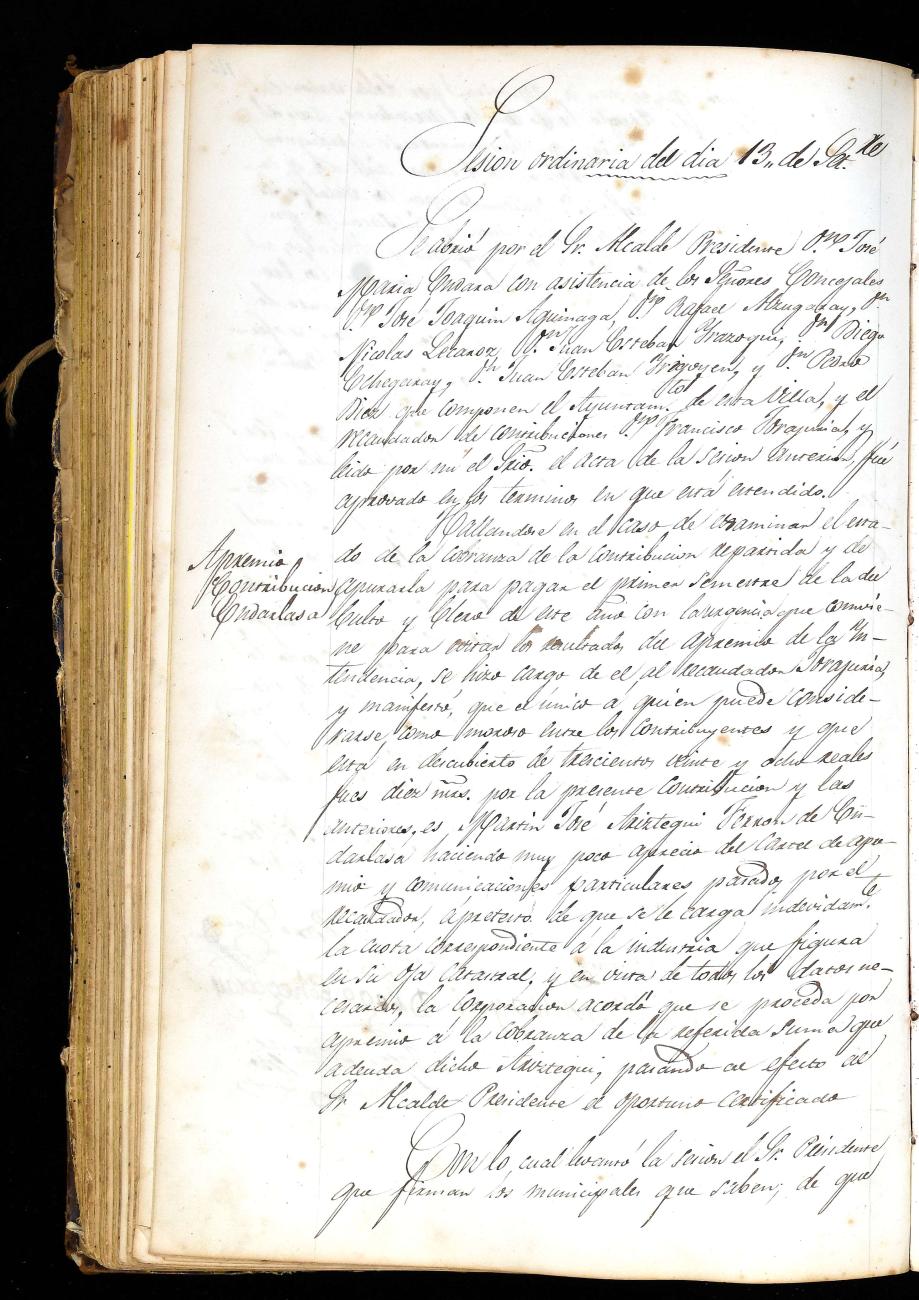 Sesion ordinaria del dia 13,, de Set.bre
Se abrió por el Sr. Alcalde Presidente D.n José
Maria Endara con asistencia de los Señores Concejales
D.n José Joaquin Aguinaga, D.n Rafael Alzugaray, D.n
Nicolas Lecaroz, D.n Juan Esteban Yrazoqui, D.n Diego
Echegaray, D.n Juan Esteban Yrigoyen, y D.n Pedro
Diez que componen el Ayuntam.to de esta Villa, y el
recaudador de contribuciones D.n Francisco Torajuria, y
leido por mi el Srio. el acta de la sesion anterior, fué
aprovado en los terminos en que está estendido.
Hallandose en el caso de examinar el esta-
do de la cobranza de la contribucion repartida y de
Apremio
Contribucion
Endarlasa
apurarla para pagar el primer semestre de la del
Culto y Clero de este año con la urgencia que convie-
ne para evitar los resultados del apremio de la In-
tendencia, se hizo cargo de el al recaudador Torajuria,
y manifestó, que el único a quien puede conside-
rarse como moroso entre los contribuyentes y que
está en descubierto de trescientos veinte y ocho reales
fues diez mrs. por la presente contribucion y las
anteriores, es Martin José Ariztegui Ferron de En-
darlasa haciendo muy poco aprecio del cartel de apre-
mio y comunicaciones particulares pasados por el
recaudador, á pretesto de que se le carga indevidam.te
la cuota correspondiente á la industria que figura
en su oja catastral, y en vista de todos los datos ne-
cesarios, la Corporacion acordó que se proceda por
apremio á la cobranza de la referida suma que
adeuda dicho Ariztegui, pasando al efecto al
Sr. Alcalde Presidente el oportuno certificado
Con lo cual levantó la sesion el Sr. Presidente
que firman los municipales que saben; de que